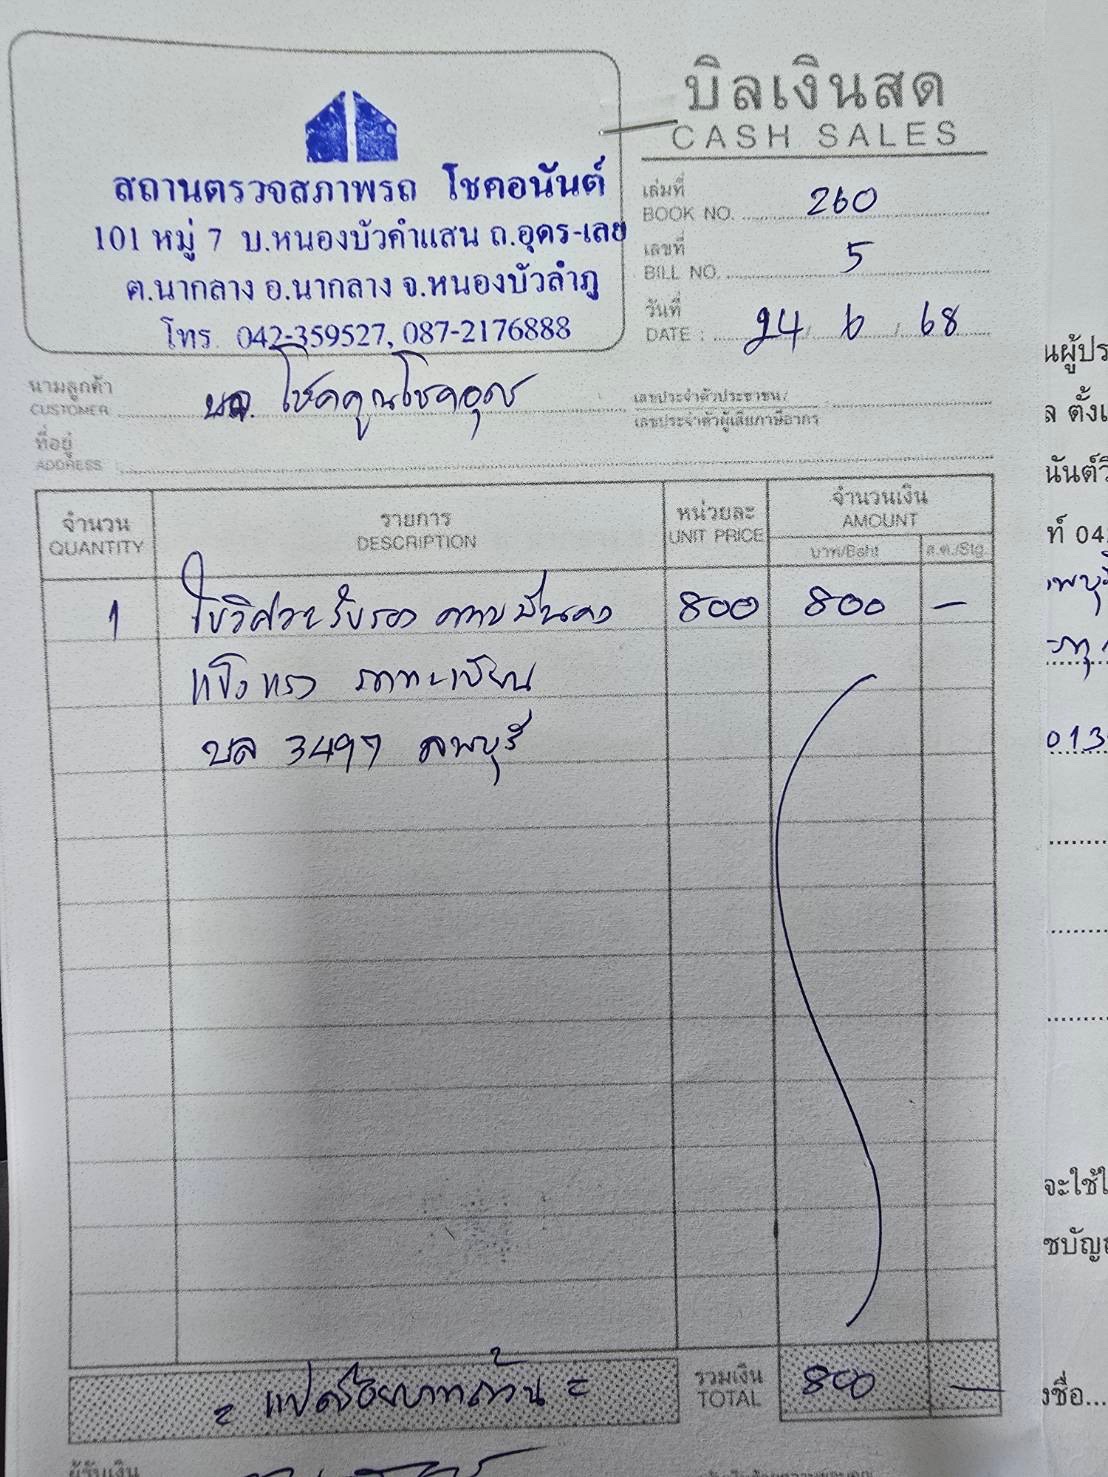 บิลเงินสด
CASH SALES
สถานตรวจสภาพรถ โชคอนันต์
101 หมู่ 7 บ.หนองบัวคำแสน ถ.อุดร-เลย
ต.นากลาง อ.นากลาง จ.หนองบัวลำภู
โทร. 042-359527, 087-2176888
เล่มที่
BOOK NO. 260
เลขที่
BILL NO. 5
วันที่
DATE : 24 / 6 / 68
นามลูกค้า
CUSTOMER บจ. โชคคูณโชค
เลขประจำตัวประชาชน/
เลขประจำตัวผู้เสียภาษีอากร
ที่อยู่
ADDRESS :
จำนวน รายการ หน่วยละ จำนวนเงิน
QUANTITY DESCRIPTION UNIT PRICE AMOUNT
บาท/Baht ส.ต./Stg.
1 ใบวิศวะรับรอง ความมั่นคง 800 800 –
แข็งแรง รถทะเบียน
บล 3497 ลพบุรี
= แปดร้อยบาทถ้วน = รวมเงิน 800 –
TOTAL
ผู้รับเงิน
นผู้ปร
ล ตั้งเ
นันต์วิ
ท์ 04
013
จะใช้ใ
ชบัญ
งชื่อ...